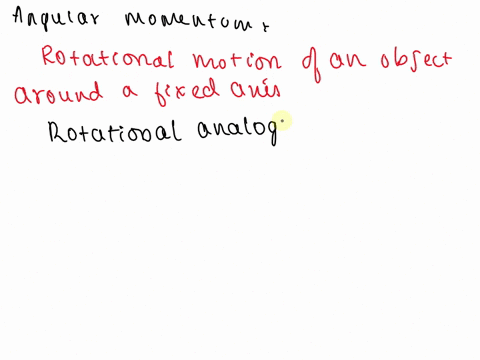 Angular momentum,
Rotational motion of an object
around a fixed axis
Rotational analog